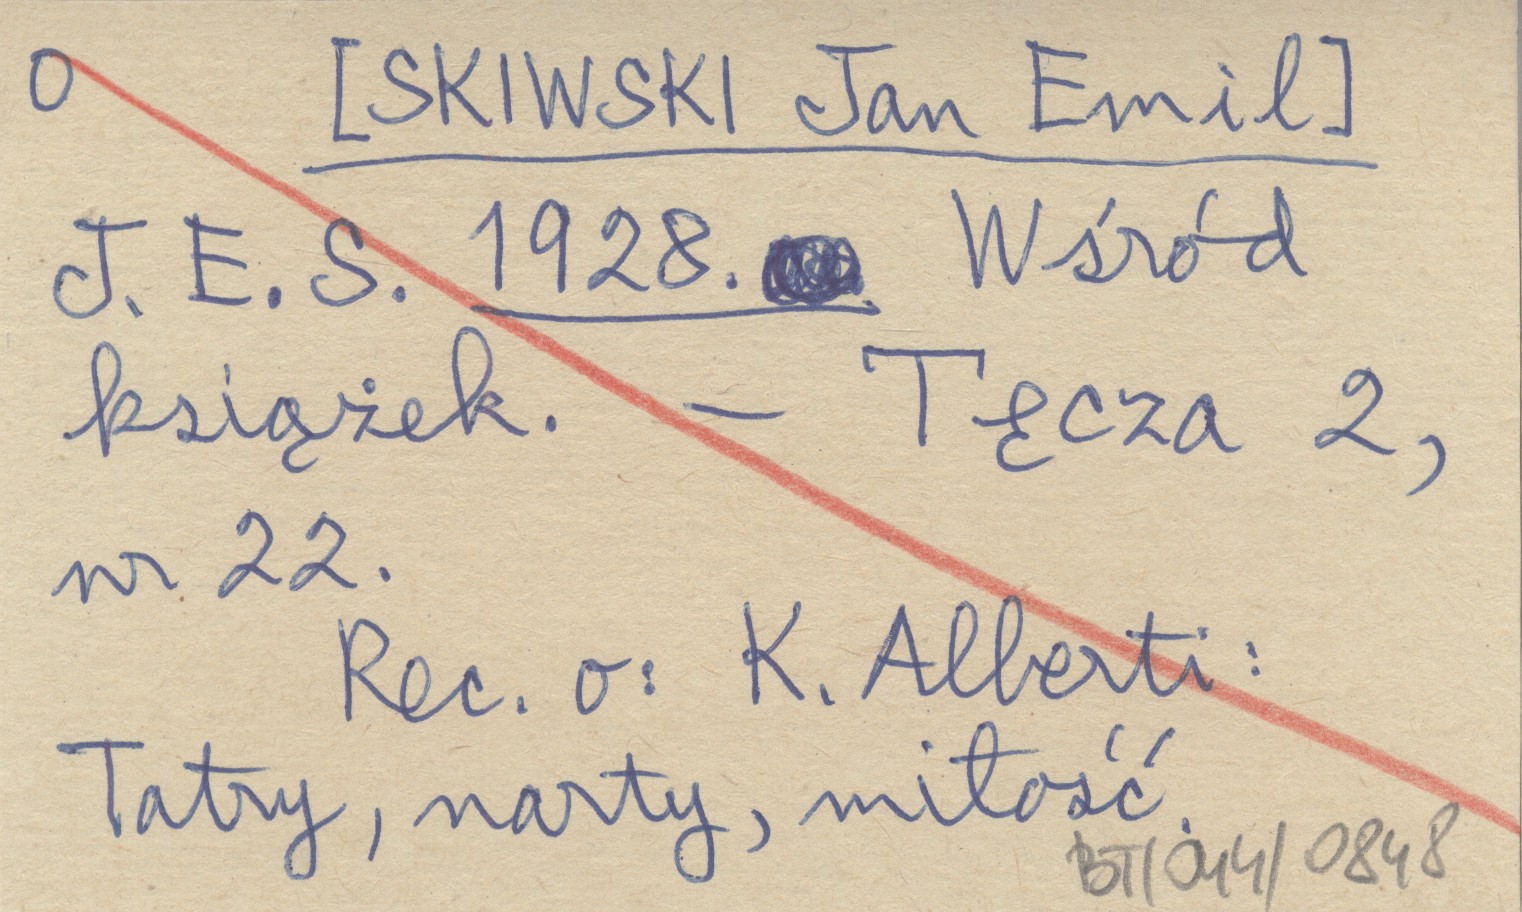 O [SKIWSKI Jan Emil]
J. E. S. 1928. Wśród
książek. — Tęcza 2,
nr 22.
Rec. o: K. Alberti:
Tatry, narty, miłość.
BT/044/0848